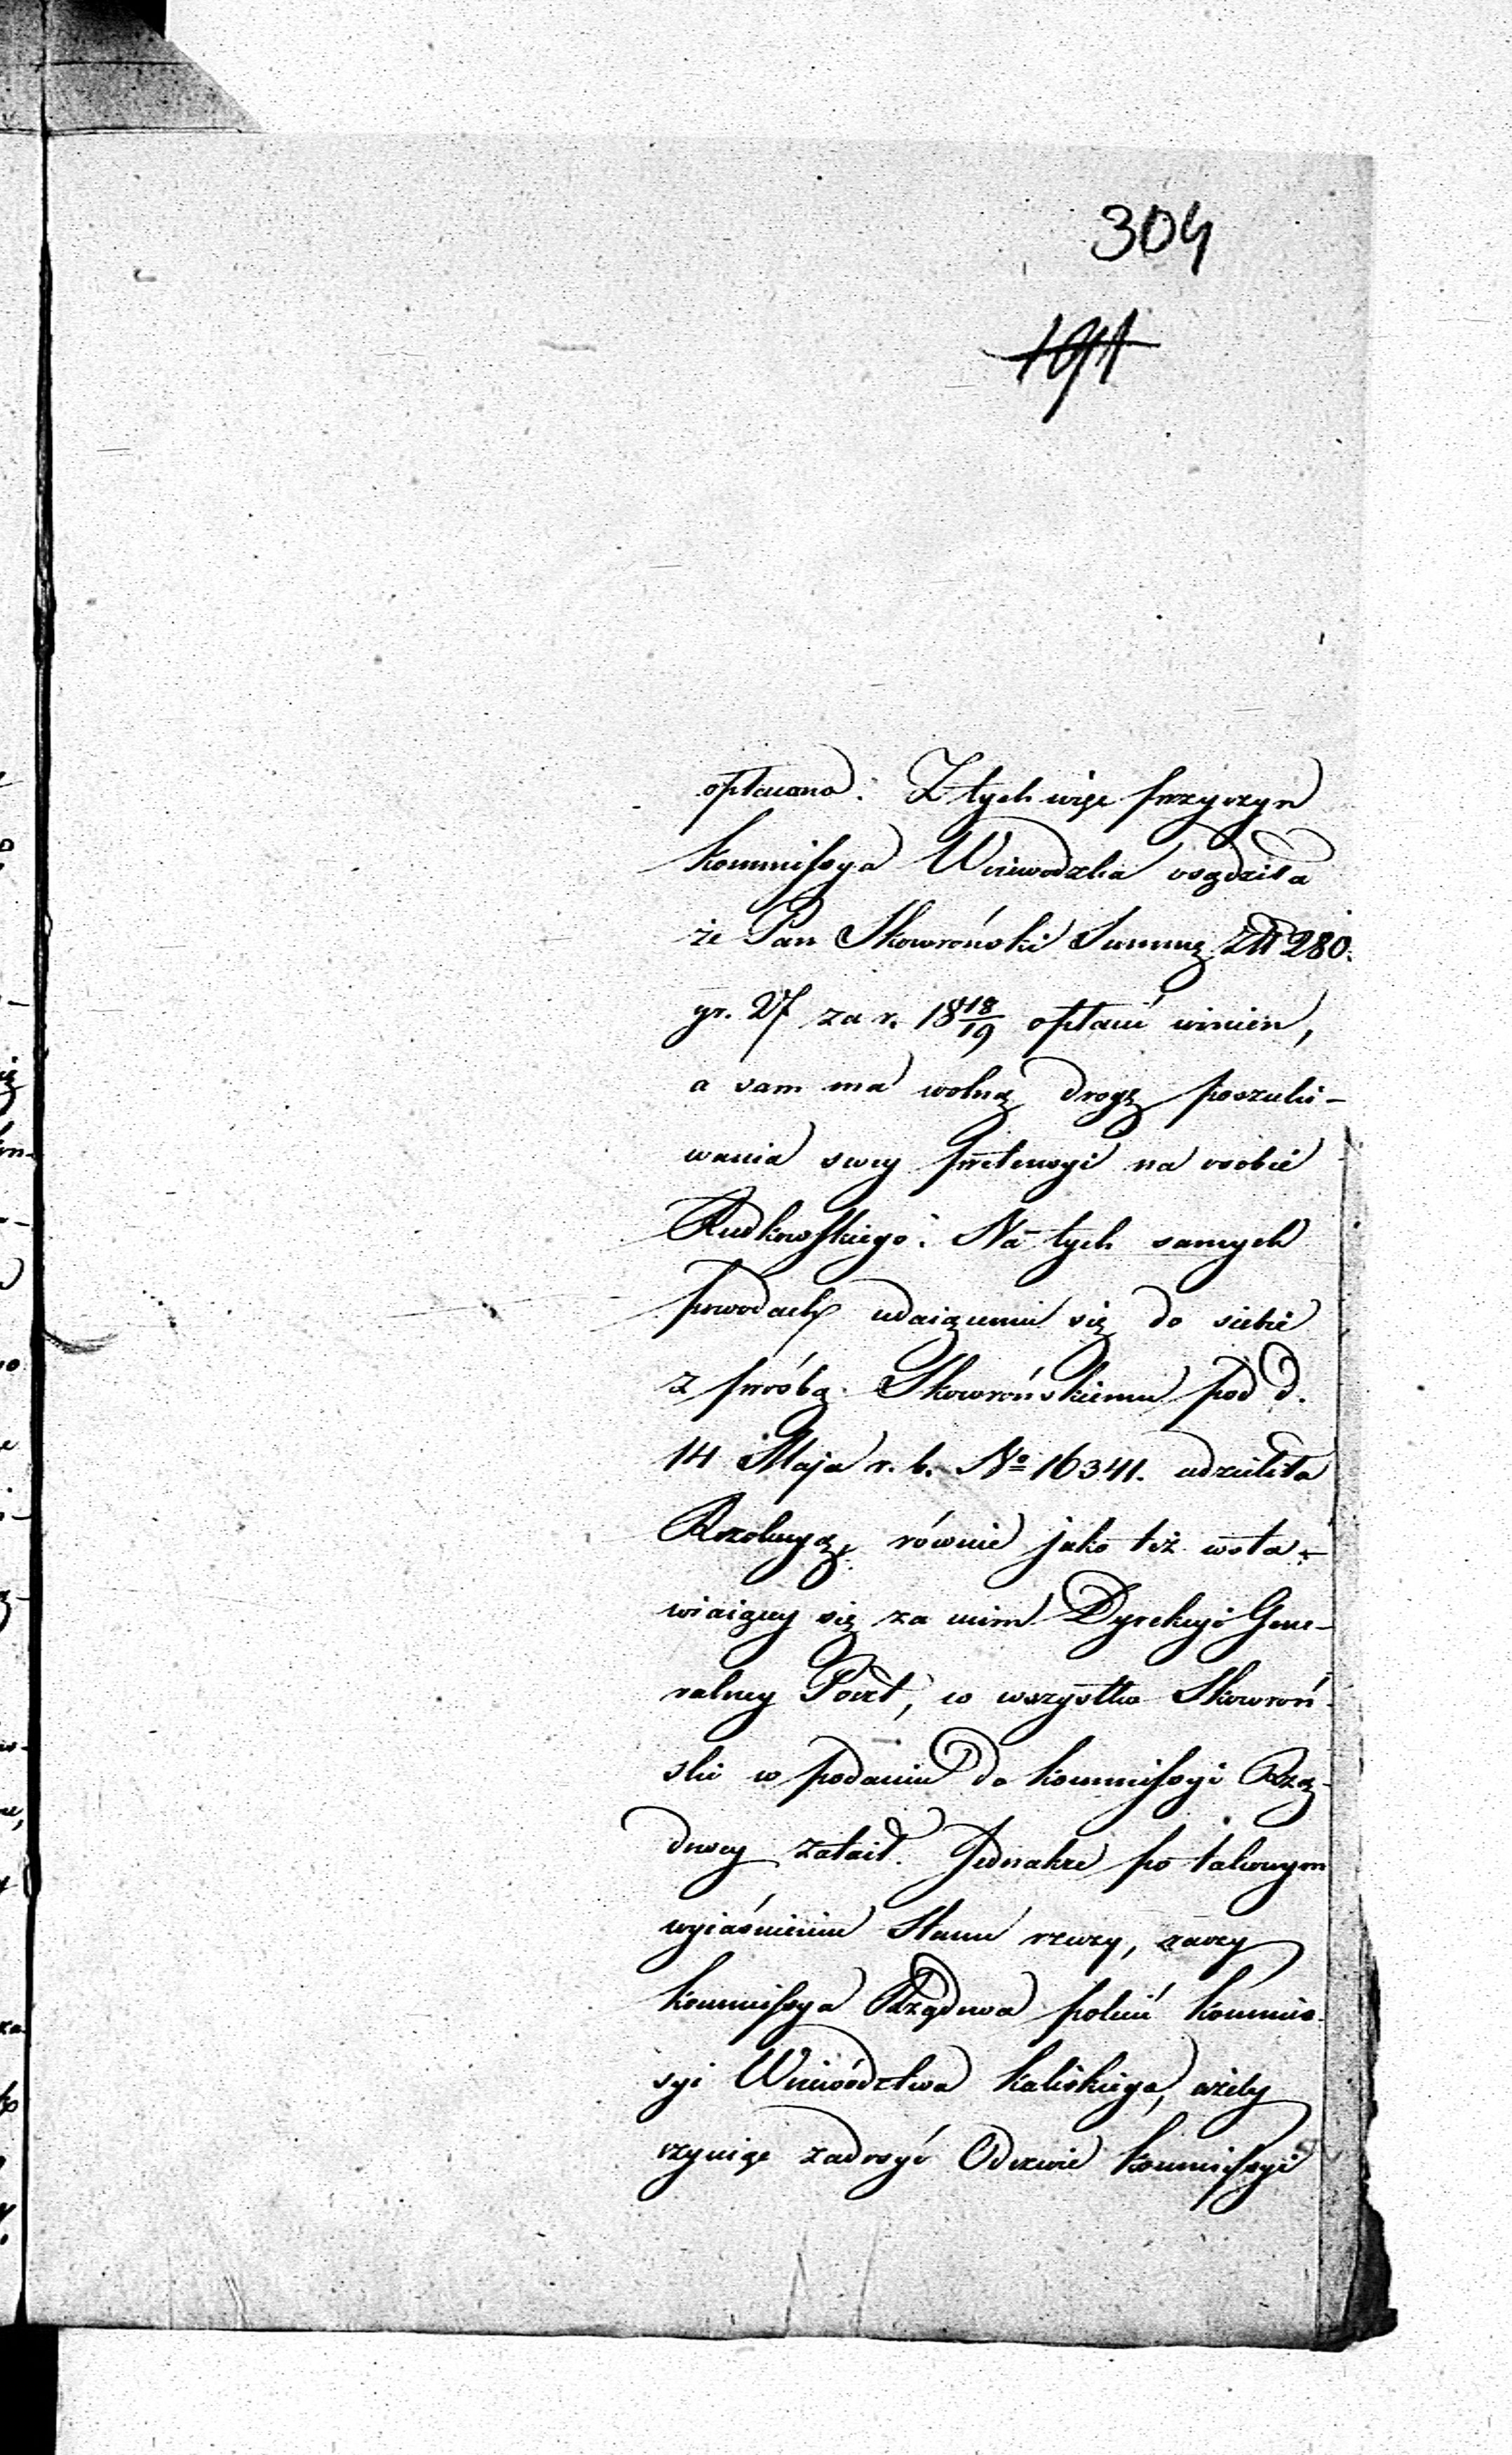 304
191
opłacono. Z tych więc przyczyn
Kommissya Woiewodzka osądziła
że Pan Skowroński Summę Złł 280.
gr. 27 za r. 18 18/19 opłacić winien,
a sam ma wolną drogę poszuki-
wania swey pretensyi na osobie
Rudkowskiego. Na tych samych
powodach udaiącemu się do siebie
z proźbą Skowrońskiemu pod d.
14 Maja r. b. No 16341. udzieliła
Rezolucyą, równie jako też wsta-
wiaiącey się za nim Dyrekcyi Gene-
ralney Poczt, co wszystko Skowroń-
ski w podaniu do Kommissyi Rzą-
dowey zataił. Jednakże po takowym
wyiaśnieniu Stanu rzeczy, raczy
Kommissya Rządowa polecić Kommis-
syi Woiewództwa Kaliskiego, ażeby
czyniąc zadosyć Odezwie Kommissyi